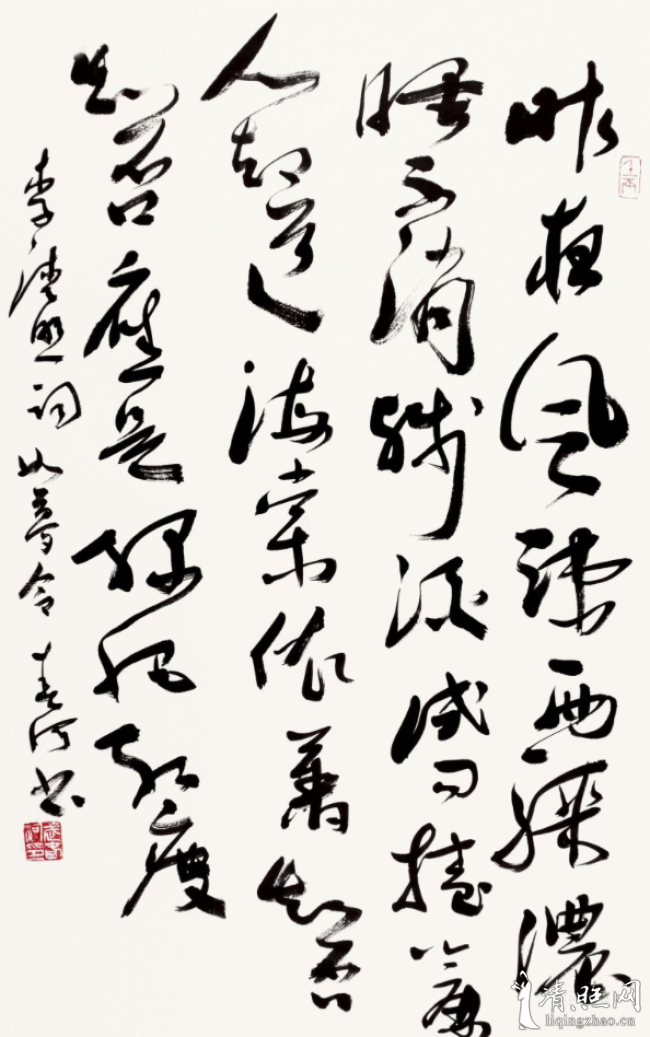 昨夜風疎雨驟濃
睡不消殘酒試問捲簾
人却道海棠依舊知否
知否應是綠肥紅瘦
李清照詞如夢令 春河书
清旺网
liqingzhao.cn